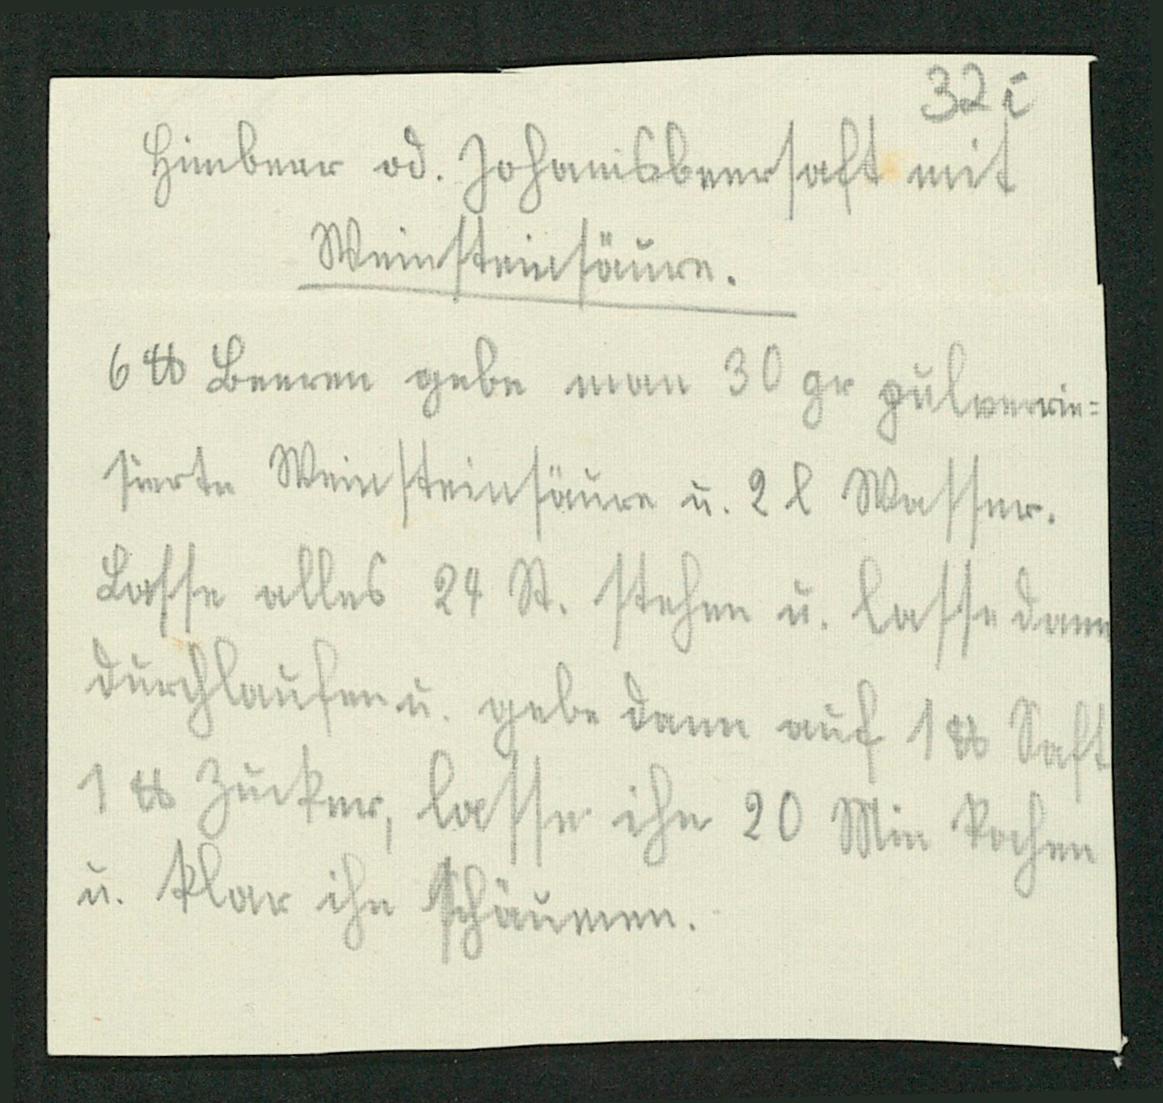 32 i
Himbeer od. Johannisbeersaft mit
Weinsteinsäure.
6 ℔ Beeren gebe man 30 gr pulverrie=
sierte Weinsteinsäure u. 2 l Wasser.
Lasse alles 24 St. stehen u. lasse dann
durchlaufen u. gebe dann auf 1 ℔ Saft
1 ℔ Zucker, lasse ihn 20 Min kochen
u. klar ihn schäumen.